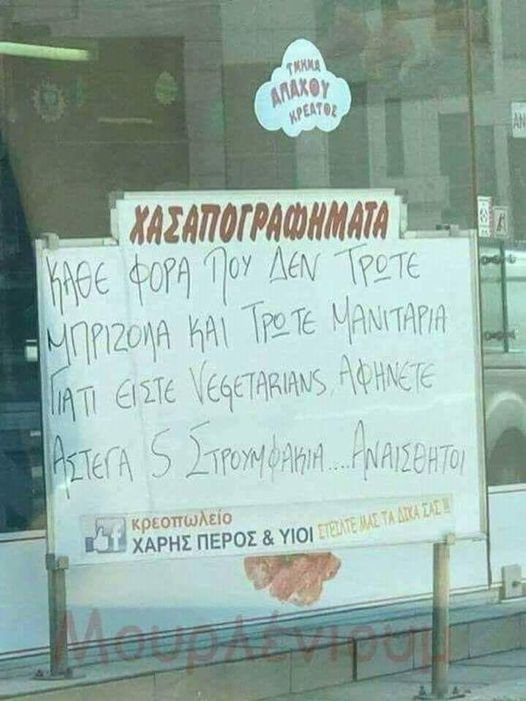 ΤΜΗΜΑ
ΑΠΑΧΟΥ
ΚΡΕΑΤΟΣ
ΧΑΣΑΠΟΓΡΑΦΗΜΑΤΑ
ΚΑΘΕ ΦΟΡΑ ΠΟΥ ΔΕΝ ΤΡΩΤΕ
ΜΠΡΙΖΟΛΑ ΚΑΙ ΤΡΩΤΕ ΜΑΝΙΤΑΡΙΑ
ΓΙΑΤΙ ΕΙΣΤΕ VEGETARIANS, ΑΦΗΝΕΤΕ
ΑΣΤΕΓΑ 5 ΣΤΡΟΥΜΦΑΚΙΑ....ΑΝΑΙΣΘΗΤΟΙ
κρεοπωλείο
ΧΑΡΗΣ ΠΕΡΟΣ & ΥΙΟΙ ΣΤΕΙΛΤΕ ΜΑΣ ΤΑ ΔΙΚΑ ΣΑΣ !!!
Μουρλέντουμ